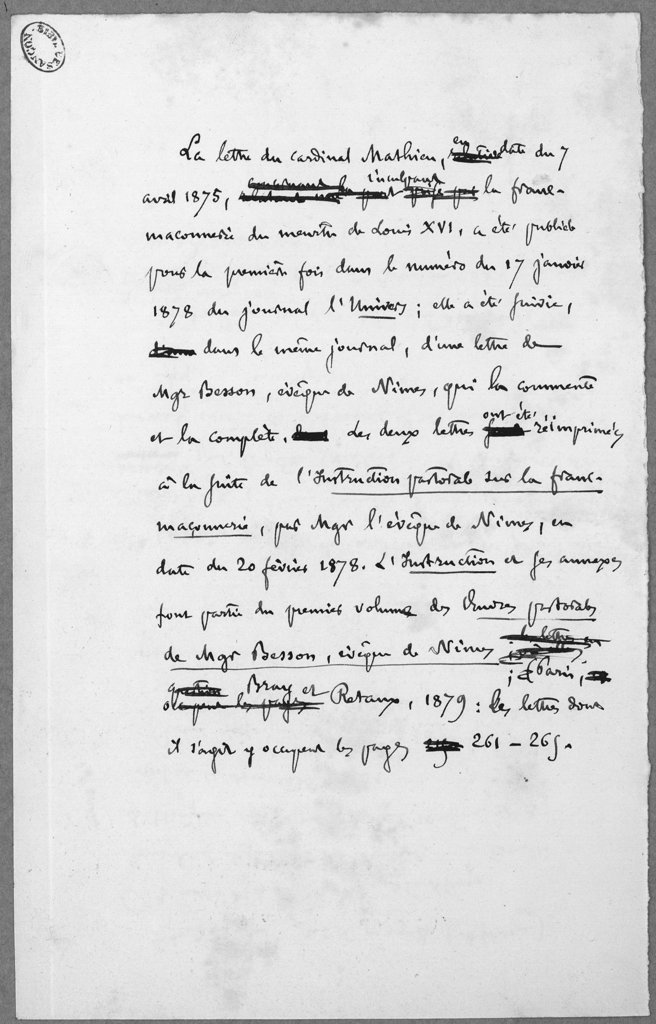 La lettre du cardinal Mathieu, en date du 7
avril 1875, inculpant la franc-
maçonnerie du meurtre de Louis XVI, a été publiée
pour la première fois dans le numéro du 17 janvier
1878 du journal l'Univers ; elle a été suivie,
dans le même journal, d'une lettre de
Mgr Besson, évêque de Nîmes, qui la commente
et la complète. Les deux lettres ont été réimprimées
à la suite de l'Instruction pastorale sur la franc-
maçonnerie, par Mgr l'évêque de Nîmes, en
date du 20 février 1878. L'Instruction et ses annexes
font partie du premier volume des Œuvres pastorales
de Mgr Besson, évêque de Nîmes
; Paris,
Bray et Retaux, 1879 : les lettres dont
il s'agit y occupent les pages 261 – 265.